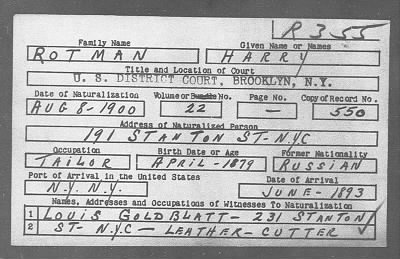 R355
Family Name Given Name or Names
ROTMAN HARRY
Title and Location of Court
U. S. DISTRICT COURT, BROOKLYN, N.Y.
Date of Naturalization Volume or Bundle No. Page No. Copy of Record No.
AUG 8-1900 22 — 550
Address of Naturalized Person
191 STANTON ST- N.Y.C
Occupation Birth Date or Age Former Nationality
TAILOR APRIL-1879 RUSSIAN
Port of Arrival in the United States Date of Arrival
N.Y. N.Y. JUNE-1893
Names, Addresses and Occupations of Witnesses To Naturalization
1 LOUIS GOLDBLATT- 231 STANTON
2 ST- N.Y.C — LEATHER-CUTTER